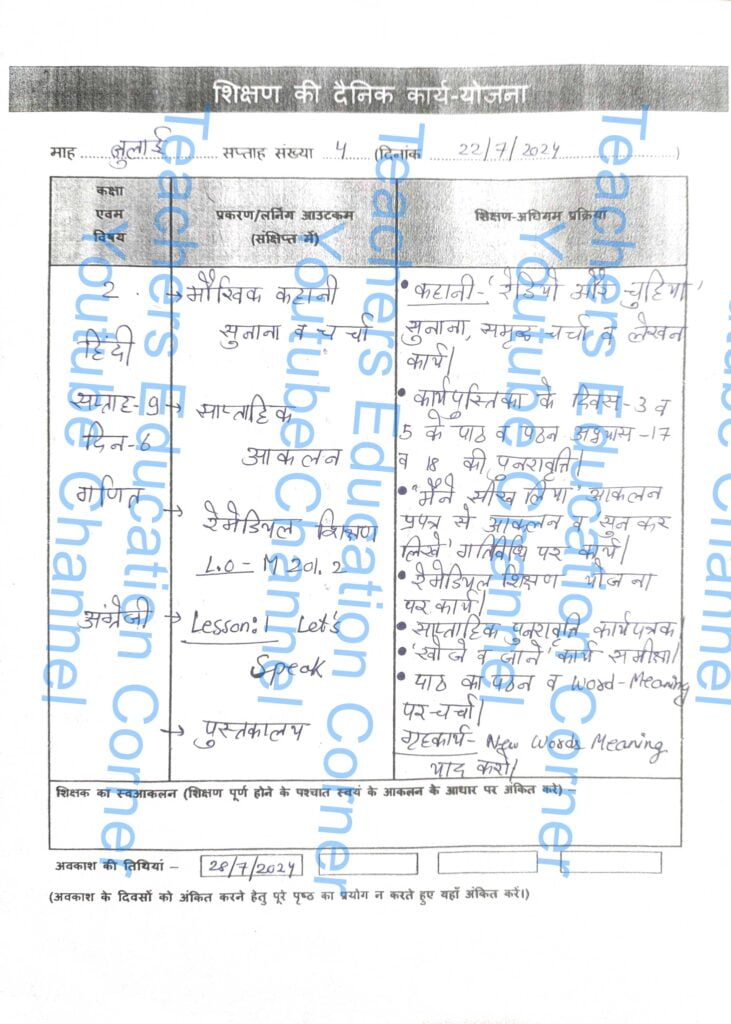 शिक्षण की दैनिक कार्य-योजना
माह ..... जुलाई ..... सप्ताह संख्या 4 (दिनांक 22/7/2024 )
कक्षा
एवम
विषय
प्रकरण/लर्निंग आउटकम
(संक्षिप्त में)
शिक्षण-अधिगम प्रक्रिया
2
हिंदी
सप्ताह-9
दिन-6
गणित
अंग्रेजी
→ मौखिक कहानी
सुनाना व चर्चा
→ साप्ताहिक
आकलन
→ रेमेडियल शिक्षण
L.O - M 201.2
Lesson:1 Let's
Speak
→ पुस्तकालय
• कहानी- 'रेडियो और चुहिया'
सुनाना, समूह चर्चा व लेखन
कार्य|
• कार्यपुस्तिका के दिवस-3 व
5 के पाठ व पठन अभ्यास-17
व 18 की पुनरावृत्ति|
• "मैंने सीख लिया" आकलन
प्रपत्र से आकलन व सुन कर
लिखें' गतिविधि पर कार्य|
• रेमेडियल शिक्षण योजना
पर कार्य|
• साप्ताहिक पुनरावृति कार्यपत्रक|
• 'खोजें व जाने' कार्य समीक्षा|
• पाठ का पठन व Word-Meaning
पर चर्चा|
गृहकार्य- New Words Meaning
याद करो|
शिक्षक का स्वआकलन (शिक्षण पूर्ण होने के पश्चात स्वयं के आकलन के आधार पर अंकित करे) –
अवकाश की तिथियां – 28/7/2024
(अवकाश के दिवसों को अंकित करने हेतु पूरे पृष्ठ का प्रयोग न करते हुए यहाँ अंकित करें।)
Teachers Education Corner
Youtube Channel
Teachers Education Corner
Youtube Channel
Teachers Educ
Youtube Channel